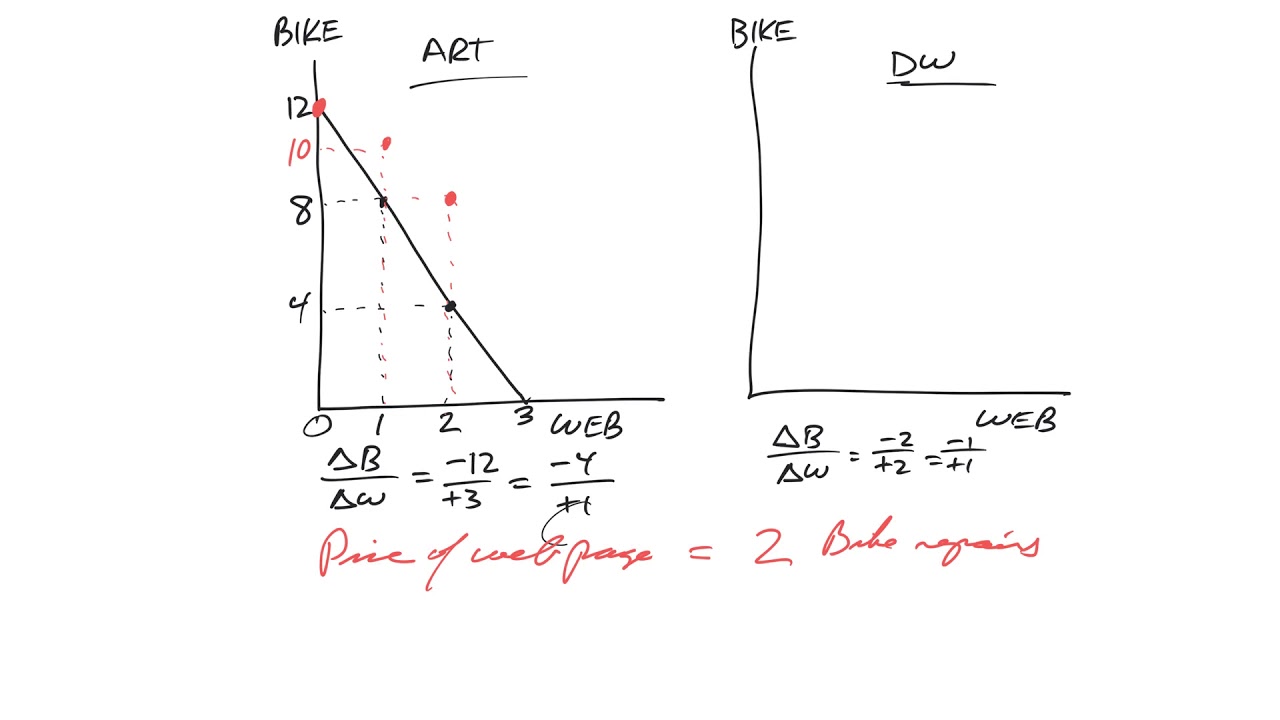 BIKE
ART
12
10
8
4
0 1 2 3 WEB
ΔB/ΔW = -12/+3 = -4/+1
BIKE
DW
WEB
ΔB/ΔW = -2/+2 = -1/+1
Price of webpage = 2 Bike repairs